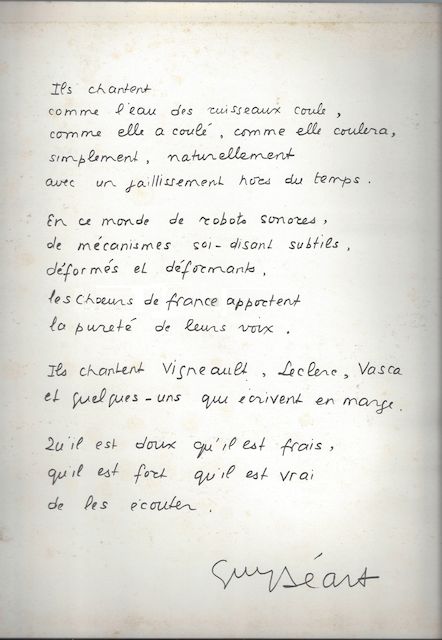 Ils chantent
comme l'eau des ruisseaux coule,
comme elle a coulé, comme elle coulera,
simplement, naturellement
avec un jaillissement hors du temps.
En ce monde de robots sonores,
de mécanismes soi-disant subtils,
déformés et déformants,
les Choeurs de france apportent
la pureté de leurs voix.
Ils chantent Vigneault, Leclerc, Vasca
et quelques-uns qui écrivent en marge.
Qu'il est doux qu'il est frais,
qu'il est fort qu'il est vrai
de les écouter.
Guy Béart